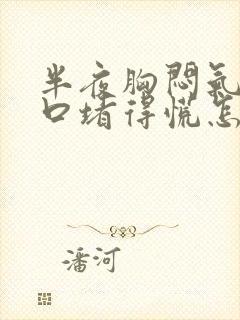 半夜胸悶氣
口堵得慌怎
潘河